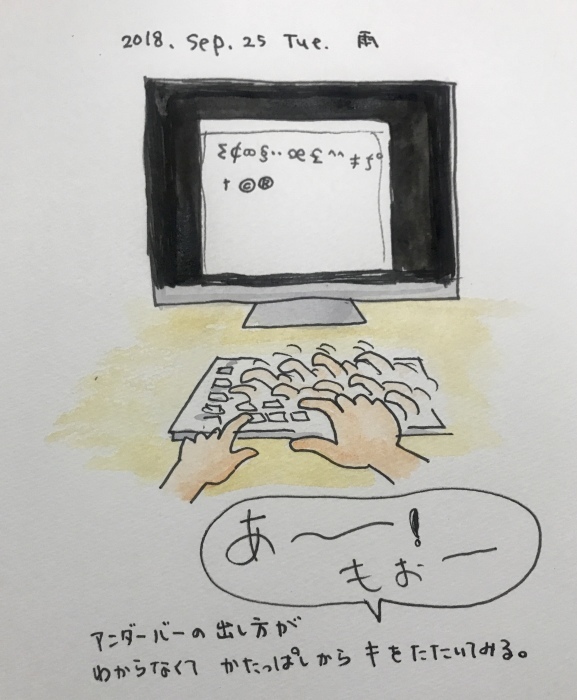 2018. Sep. 25 Tue. 雨
ξ¢∞§··œ£^^‡ƒº
†©®
あ〜!
もぉー
アンダーバーの出し方が
わからなくて かたっぱしから キをたたいてみる。